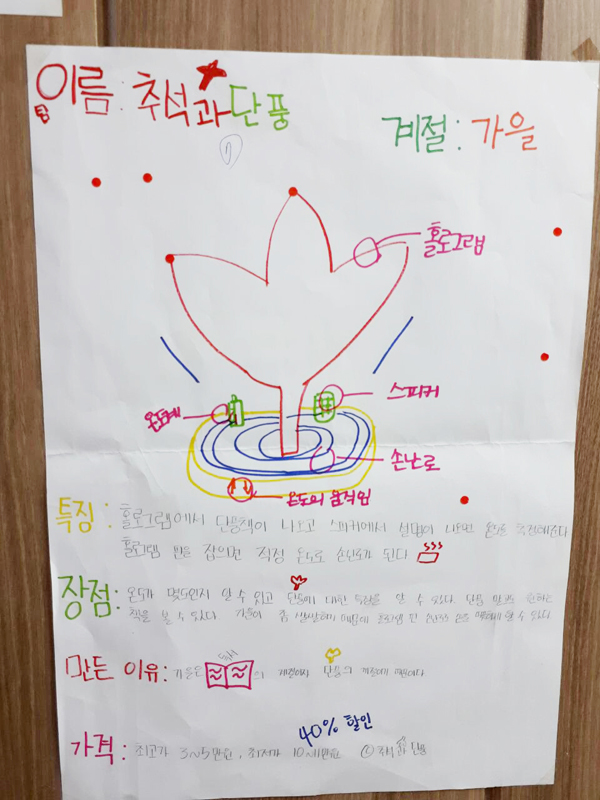 이름: 추석과단풍
계절: 가을
홀로그램
온도계
스피커
손난로
온도의 움직임
특징: 홀로그램에서 단풍책이 나오고 스피커에서 설명이 나오면 온도를 측정해준다
홀로그램 판을 잡으면 적정 온도로 손난로가 된다
장점: 온도가 몇도인지 알 수 있고 단풍에 대한 특징을 알 수 있다. 단풍 말고도 원하는
책을 볼 수 있다. 가을이 좀 쌀쌀하기 때문에 홀로그램 판 손을 따뜻하게 할 수 있다.
만든 이유: 가을은 의 계절이자 단풍의 계절이기 때문이다
40% 할인
가격: 최고가 3~5만원, 최저가 10~1만원 ⓒ추석과 단풍